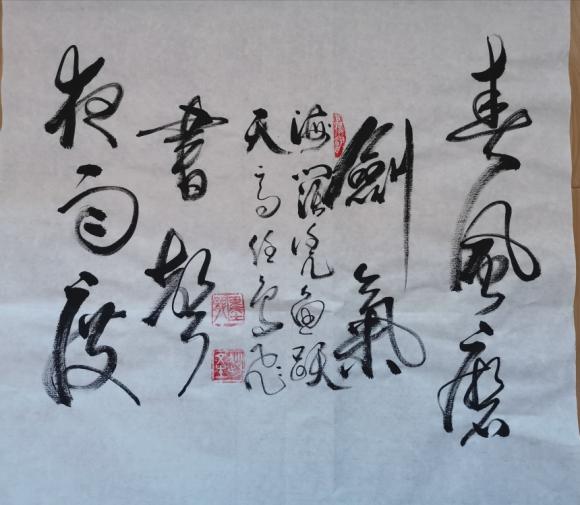 春風磨
劍氣
夜雨度
書聲
海闊凭魚跃
天高任鳥飛